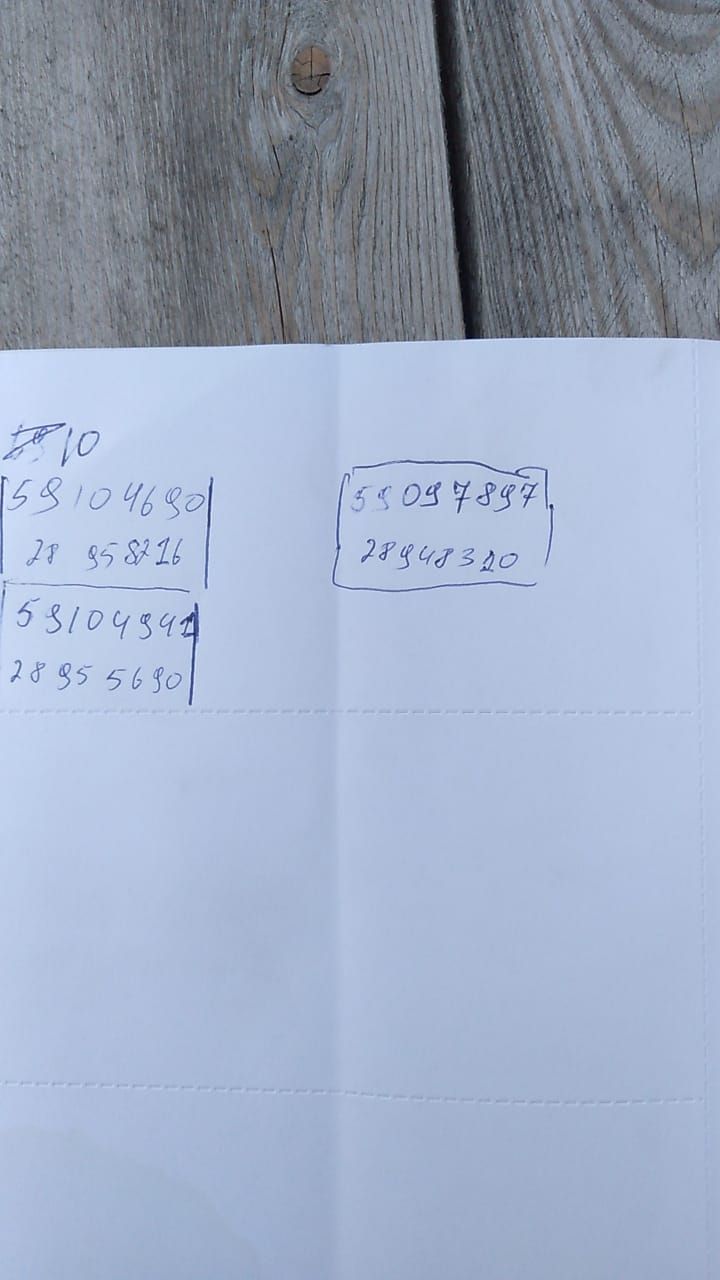 10
59104690
28 958216
59104941
28 95 5690
59097897
28948310